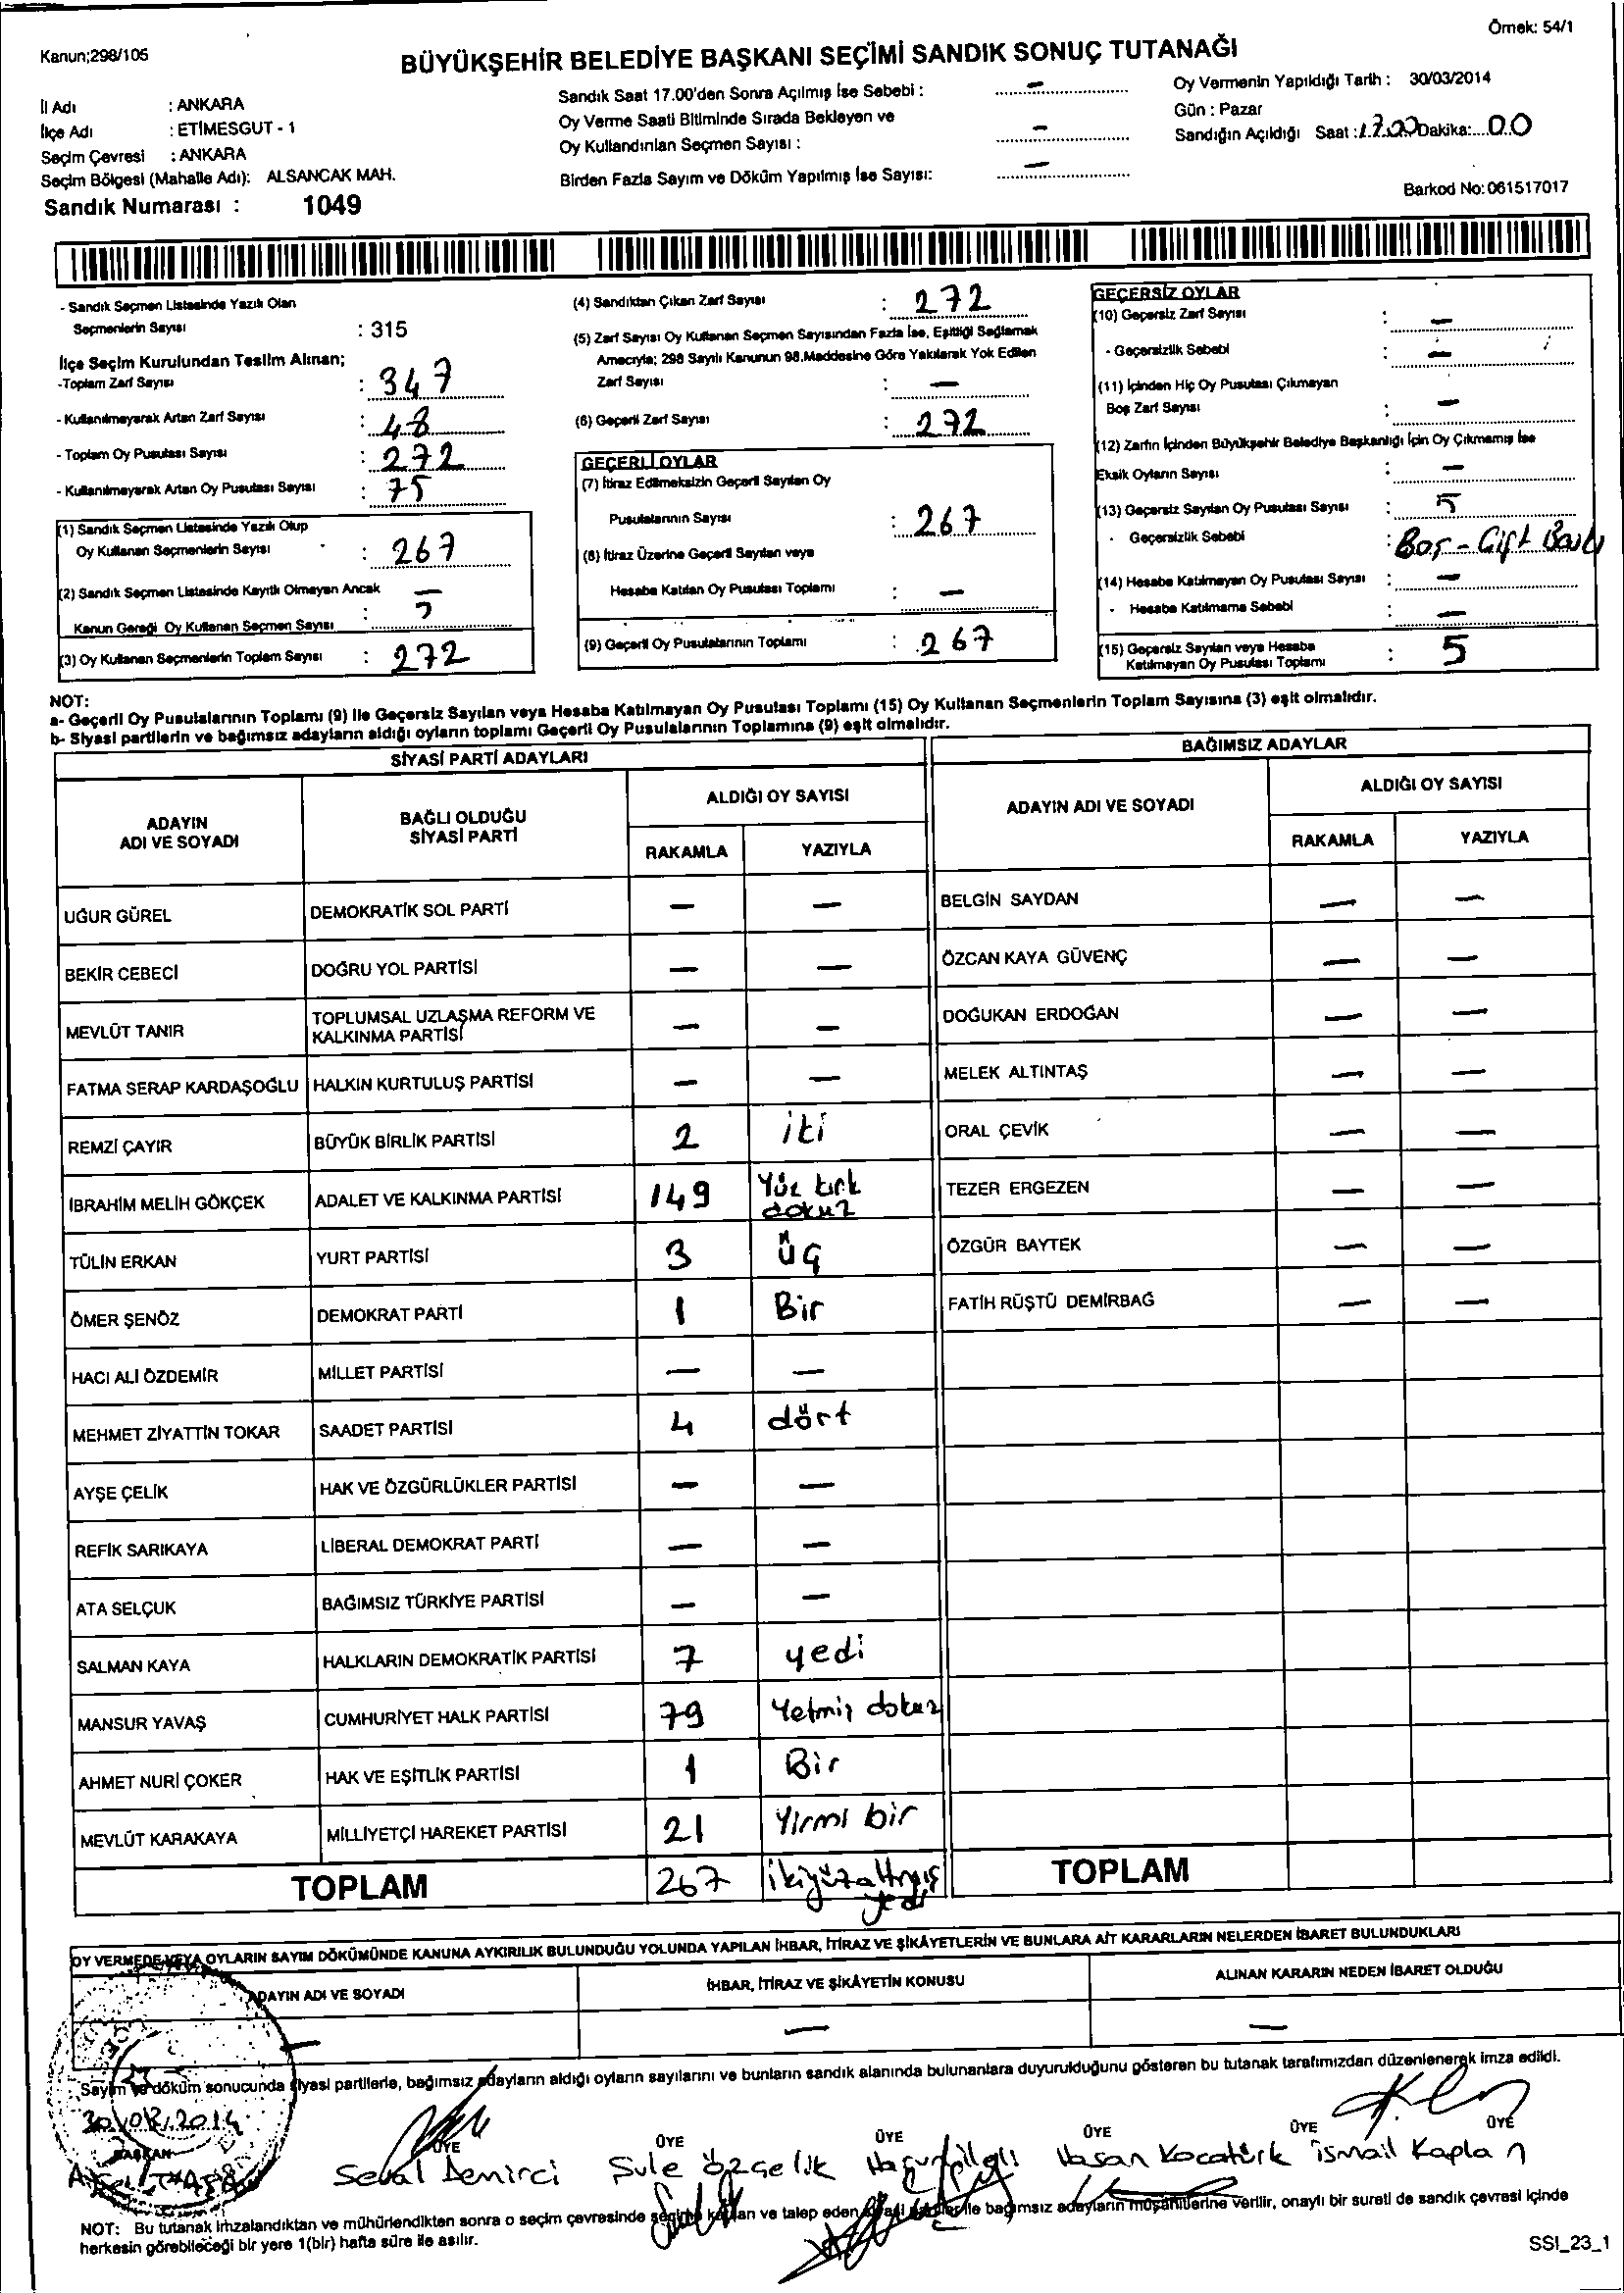 Örnek: 54/1
Kanun;298/105
BÜYÜKŞEHİR BELEDİYE BAŞKANI SEÇİMİ SANDIK SONUÇ TUTANAĞI
İl Adı : ANKARA
İlçe Adı : ETİMESGUT - 1
Seçim Çevresi : ANKARA
Seçim Bölgesi (Mahalle Adı): ALSANCAK MAH.
Sandık Numarası : 1049
Sandık Saat 17.00'den Sonra Açılmış İse Sebebi : –
Oy Verme Saati Bitiminde Sırada Bekleyen ve
Oy Kullandırılan Seçmen Sayısı : –
Birden Fazla Sayım ve Döküm Yapılmış İse Sayısı: –
Oy Vermenin Yapıldığı Tarih : 30/03/2014
Gün : Pazar
Sandığın Açıldığı Saat :17.00 Dakika:...00
Barkod No:061517017
- Sandık Seçmen Listesinde Yazılı Olan
Seçmenlerin Sayısı : 315
İlçe Seçim Kurulundan Teslim Alınan;
-Toplam Zarf Sayısı : 347
- Kullanılmayarak Artan Zarf Sayısı : 48
- Toplam Oy Pusulası Sayısı : 272
- Kullanılmayarak Artan Oy Pusulası Sayısı : 75
(1) Sandık Seçmen Listesinde Yazılı Olup
Oy Kullanan Seçmenlerin Sayısı : 267
(2) Sandık Seçmen Listesinde Kayıtlı Olmayan Ancak
Kanun Gereği Oy Kullanan Seçmen Sayısı : 5
(3) Oy Kullanan Seçmenlerin Toplam Sayısı : 272
(4) Sandıktan Çıkan Zarf Sayısı : 272
(5) Zarf Sayısı Oy Kullanan Seçmen Sayısından Fazla İse, Eşitliği Sağlamak
Amacıyla; 298 Sayılı Kanunun 98.Maddesine Göre Yakılarak Yok Edilen
Zarf Sayısı : –
(6) Geçerli Zarf Sayısı : 272
GEÇERLİ OYLAR
(7) İtiraz Edilmeksizin Geçerli Sayılan Oy
Pusulalarının Sayısı : 267
(8) İtiraz Üzerine Geçerli Sayılan veya
Hesaba Katılan Oy Pusulası Toplamı : –
(9) Geçerli Oy Pusulalarının Toplamı : 267
GEÇERSİZ OYLAR
(10) Geçersiz Zarf Sayısı : –
- Geçersizlik Sebebi : –
(11) İçinden Hiç Oy Pusulası Çıkmayan
Boş Zarf Sayısı : –
(12) Zarfın İçinden Büyükşehir Belediye Başkanlığı İçin Oy Çıkmamış İse
Eksik Oyların Sayısı : –
(13) Geçersiz Sayılan Oy Pusulası Sayısı : 5
- Geçersizlik Sebebi : Boş - Çift Baskı
(14) Hesaba Katılmayan Oy Pusulası Sayısı : –
- Hesaba Katılmama Sebebi : –
(15) Geçersiz Sayılan veya Hesaba
Katılmayan Oy Pusulası Toplamı : 5
NOT:
a- Geçerli Oy Pusulalarının Toplamı (9) ile Geçersiz Sayılan veya Hesaba Katılmayan Oy Pusulası Toplamı (15) Oy Kullanan Seçmenlerin Toplam Sayısına (3) eşit olmalıdır.
b- Siyasi partilerin ve bağımsız adayların aldığı oyların toplamı Geçerli Oy Pusulalarının Toplamına (9) eşit olmalıdır.
SİYASİ PARTİ ADAYLARI BAĞIMSIZ ADAYLAR
ADAYIN ADI VE SOYADI BAĞLI OLDUĞU SİYASİ PARTİ ALDIĞI OY SAYISI ADAYIN ADI VE SOYADI ALDIĞI OY SAYISI
RAKAMLA YAZIYLA RAKAMLA YAZIYLA
UĞUR GÜREL DEMOKRATİK SOL PARTİ – – BELGİN SAYDAN – –
BEKİR CEBECİ DOĞRU YOL PARTİSİ – – ÖZCAN KAYA GÜVENÇ – –
MEVLÜT TANIR TOPLUMSAL UZLAŞMA REFORM VE KALKINMA PARTİSİ – – DOĞUKAN ERDOĞAN – –
FATMA SERAP KARDAŞOĞLU HALKIN KURTULUŞ PARTİSİ – – MELEK ALTINTAŞ – –
REMZİ ÇAYIR BÜYÜK BİRLİK PARTİSİ 2 iki ORAL ÇEVİK – –
İBRAHİM MELİH GÖKÇEK ADALET VE KALKINMA PARTİSİ 149 Yüz kırk dokuz TEZER ERGEZEN – –
TÜLİN ERKAN YURT PARTİSİ 3 üç ÖZGÜR BAYTEK – –
ÖMER ŞENÖZ DEMOKRAT PARTİ 1 Bir FATİH RÜŞTÜ DEMİRBAĞ – –
HACI ALİ ÖZDEMİR MİLLET PARTİSİ – –
MEHMET ZİYATTİN TOKAR SAADET PARTİSİ 4 dört
AYŞE ÇELİK HAK VE ÖZGÜRLÜKLER PARTİSİ – –
REFİK SARIKAYA LİBERAL DEMOKRAT PARTİ – –
ATA SELÇUK BAĞIMSIZ TÜRKİYE PARTİSİ – –
SALMAN KAYA HALKLARIN DEMOKRATİK PARTİSİ 7 yedi
MANSUR YAVAŞ CUMHURİYET HALK PARTİSİ 79 Yetmiş dokuz
AHMET NURİ ÇOKER HAK VE EŞİTLİK PARTİSİ 1 Bir
MEVLÜT KARAKAYA MİLLİYETÇİ HAREKET PARTİSİ 21 Yirmi bir
TOPLAM 267 ikiyüzaltmış yedi TOPLAM
OY VERMEDE VEYA OYLARIN SAYIM DÖKÜMÜNDE KANUNA AYKIRILIK BULUNDUĞU YOLUNDA YAPILAN İHBAR, İTİRAZ VE ŞİKÂYETLERİN VE BUNLARA AİT KARARLARIN NELERDEN İBARET BULUNDUKLARI
ADAYIN ADI VE SOYADI İHBAR, İTİRAZ VE ŞİKÂYETİN KONUSU ALINAN KARARIN NEDEN İBARET OLDUĞU
– – –
Sayım ve döküm sonucunda siyasi partilerle, bağımsız adayların aldığı oyların sayılarını ve bunların sandık alanında bulunanlara duyurulduğunu gösteren bu tutanak tarafımızdan düzenlenerek imza edildi.
30/03/2014
BAŞKAN ÜYE ÜYE ÜYE ÜYE ÜYE ÜYE
Seval Demirci Şule Özçelik Hasan Kocatürk ismail Kaplan
NOT: Bu tutanak imzalandıktan ve mühürlendikten sonra o seçim çevresinde seçime katılan ve talep eden siyasi partiler ile bağımsız adayların müşahitlerine verilir, onaylı bir sureti de sandık çevresi içinde
herkesin görebileceği bir yere 1(bir) hafta süre ile asılır.
SSI_23_1